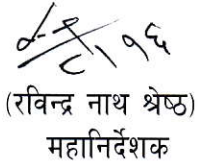 ८।१६
(रविन्द्र नाथ श्रेष्ठ)
महानिर्देशक